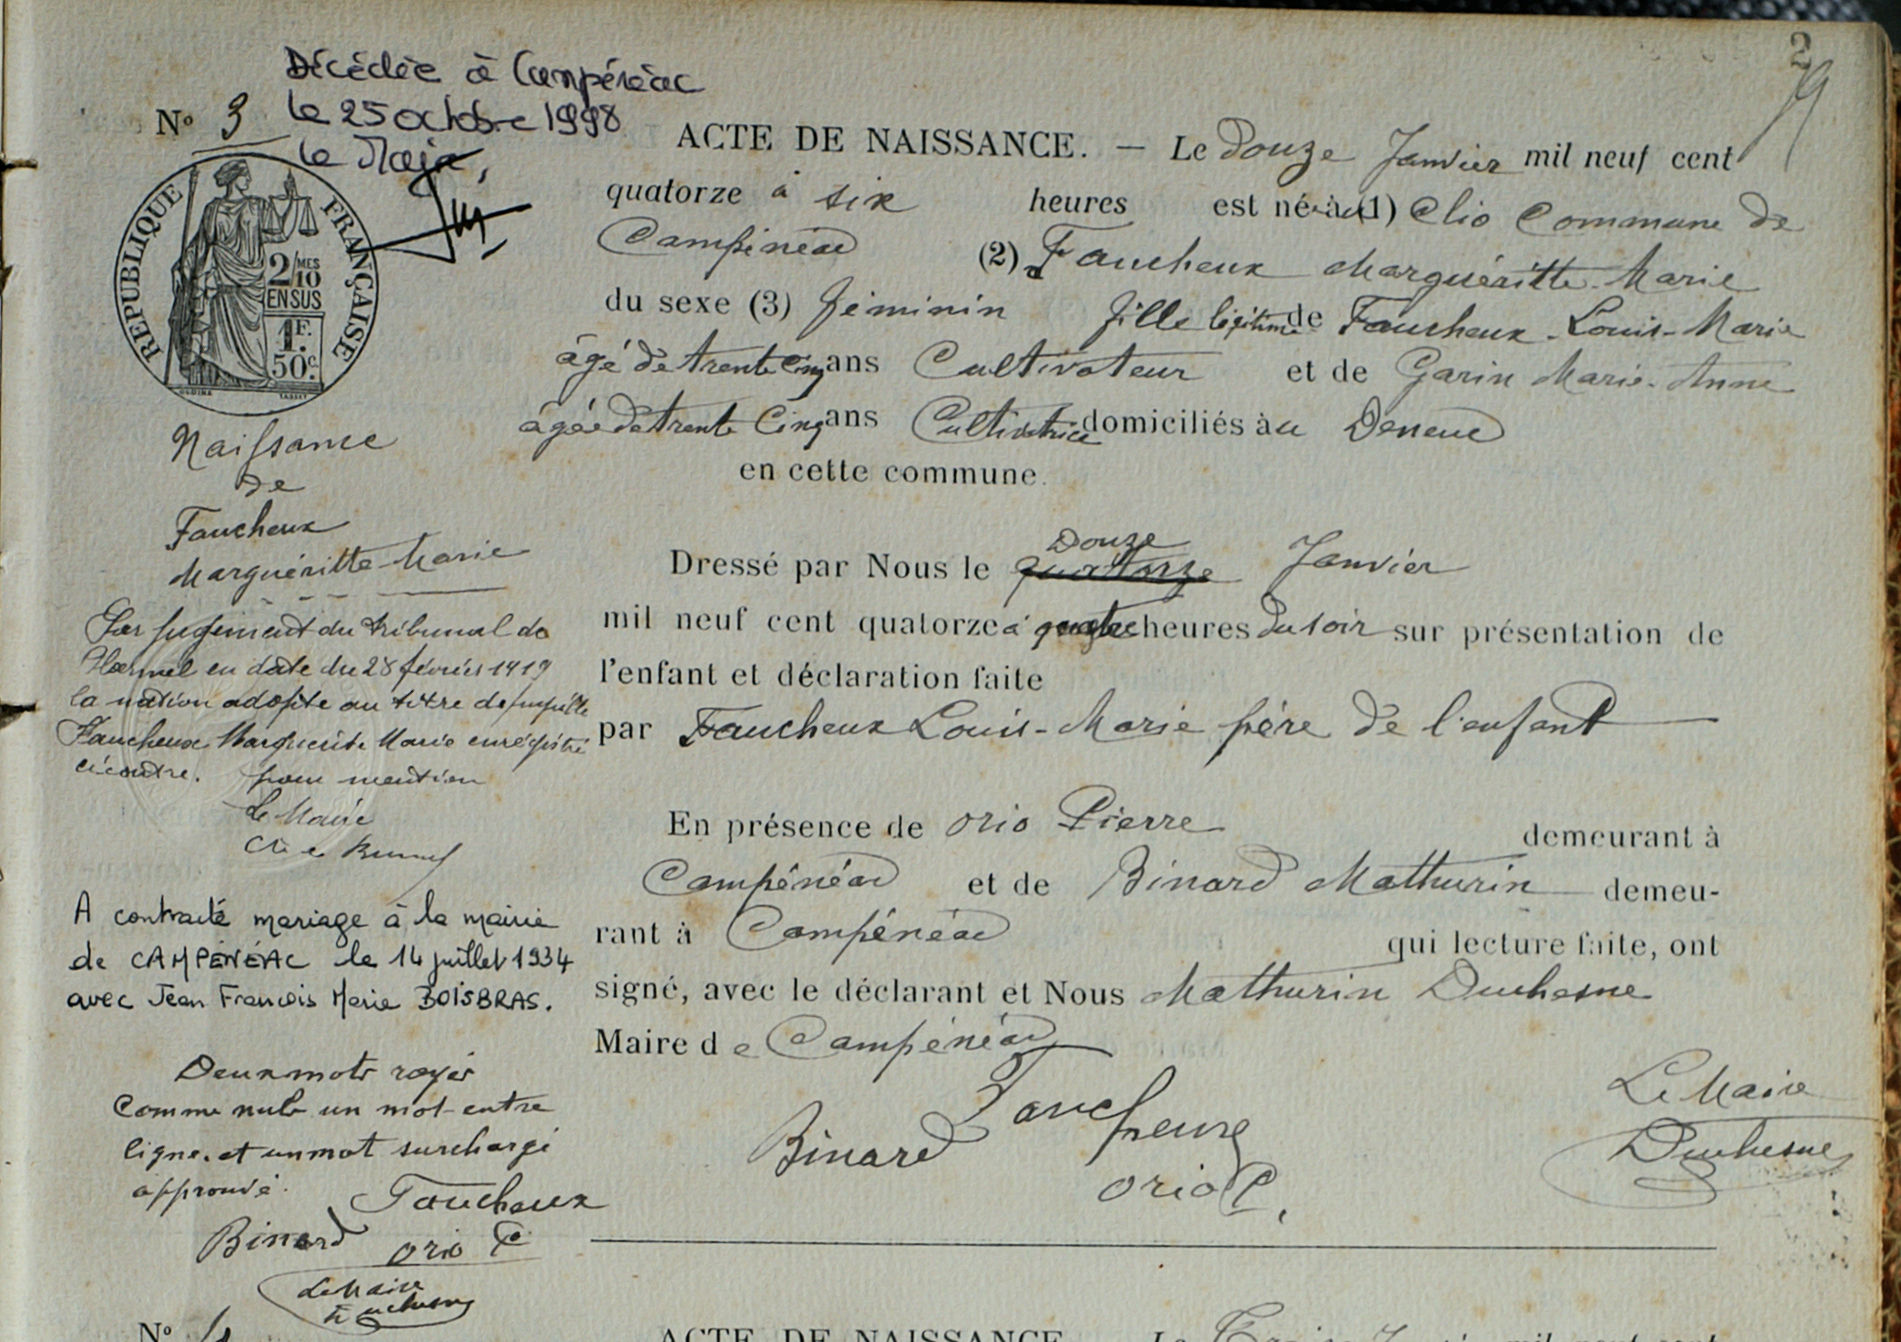 2
Décédée à Campénéac
N° 3 le 25 octobre 1998
le Maire,
RÉPUBLIQUE FRANÇAISE
2/10 MES
EN SUS
1F.
50c.
Naissance
de
Faucheux
Marguéritte Marie
Par jugement du tribunal de
Ploermel en date du 28 février 1919
la nation adopte au titre de pupille
Faucheux Marguerite Marie enregistré
ci contre. pour mention
Le Maire
A contracté mariage à la mairie
de CAMPÉNÉAC le 14 juillet 1934
avec Jean François Marie BOISBRAS.
Deux mots rayés
Comme nuls un mot entre
ligne et un mot surchargé
approuvé.
Faucheux
Binard Orio P
Le Maire
Duchesne
ACTE DE NAISSANCE. — Le Douze Janvier mil neuf cent
quatorze à six heures est née à (1) Clio Commune de
Campénéac (2) Faucheux Marguéritte-Marie
du sexe (3) féminin fille légitime de Faucheux-Louis-Marie
âgé de trente cinq ans Cultivateur et de Garin Marie-Anne
âgée de trente cinq ans Cultivatrice domiciliés au Deneuc
en cette commune.
Douze
Dressé par Nous le quatorze Janvier
mil neuf cent quatorze à quatre heures du soir sur présentation de
l'enfant et déclaration faite
par Faucheux Louis-Marie père de l'enfant
En présence de Orio Pierre demeurant à
Campénéac et de Binard Mathurin demeu-
rant à Campénéac qui lecture faite, ont
signé, avec le déclarant et Nous Mathurin Duchesne
Maire de Campénéac
Faucheux Le Maire
Binard Duchesne
Orio P.
N° 4 ACTE DE NAISSANCE. — Le Treize